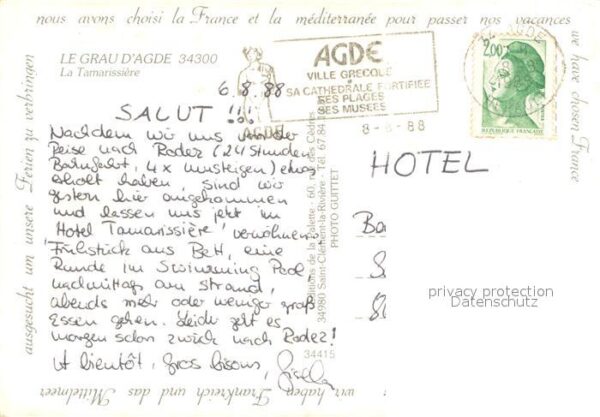 nous avons choisi la France et la méditerranée pour passer nos vacances
we have chosen France
LE GRAU D'AGDE 34300
La Tamarissière
AGDE
VILLE GRECQUE
SA CATHEDRALE FORTIFIEE
SES PLAGES
SES MUSEES
AGDE
8-8-88
2,00
REPUBLIQUE FRANÇAISE
6.8.88
SALUT !!!
Nachdem wir uns von der
Reise nach Rodez (24 Stunden
Bahnfahrt, 4x umsteigen) etwas
erholt haben, sind wir
gestern hier angekommen
und lassen uns jetzt im
"Hotel Tamarissière" verwöhnen:
Frühstück aus Bett, eine
Runde im Swimming Pool,
nachmittags am Strand,
abends mehr oder weniger groß
Essen gehen. Leider geht es
morgen schon zurück nach Rodez!
A bientôt, Gros bisous, Gisela
Editions de la Palette - 60, rue des Cèdres
34980 Saint-Clément-la-Rivière - Tél. 67 84
PHOTO GUITTET
34415
HOTEL
privacy protection
Datenschutz
ausgesucht um unsere Ferien zu verbringen
wir haben Frankreich und das Mittelmeer